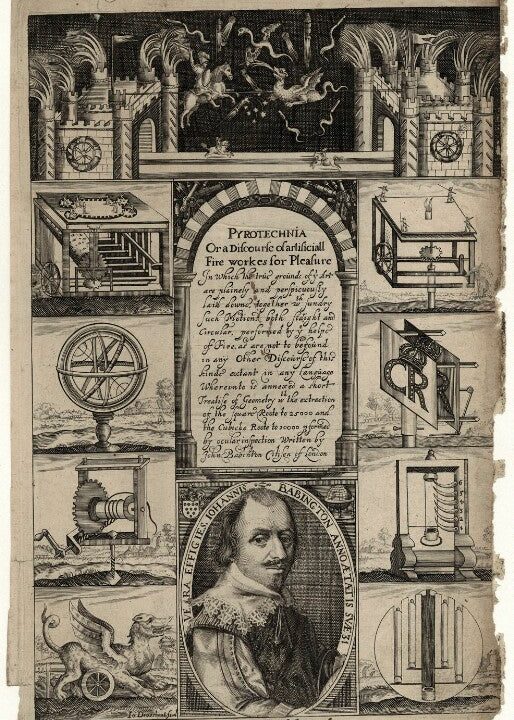 PYROTECHNIA
Or a Discourse of artificiall
Fire workes for Pleasure
In which the true grounds of yͤ Art
are plainely and perspicuously
laid downe, together wͭͪ sundry
such Motions, both straight and
Circular, performed by yͤ helpe
of Fire, as are not to be found
in any Other Discourse of this
kinde extant in any Language
Whereunto is annexed a short
Treatise of Geometry wͭͪ the extraction
of the square Roote to 25000 and
the Cubicke Roote to 10000
by ocular inspection Written by
John Babington Citisen of London
VERA EFFIGIES IOHANNIS BABINGTON ANNO ÆTATIS SVÆ 31
CR
Io Droeshout